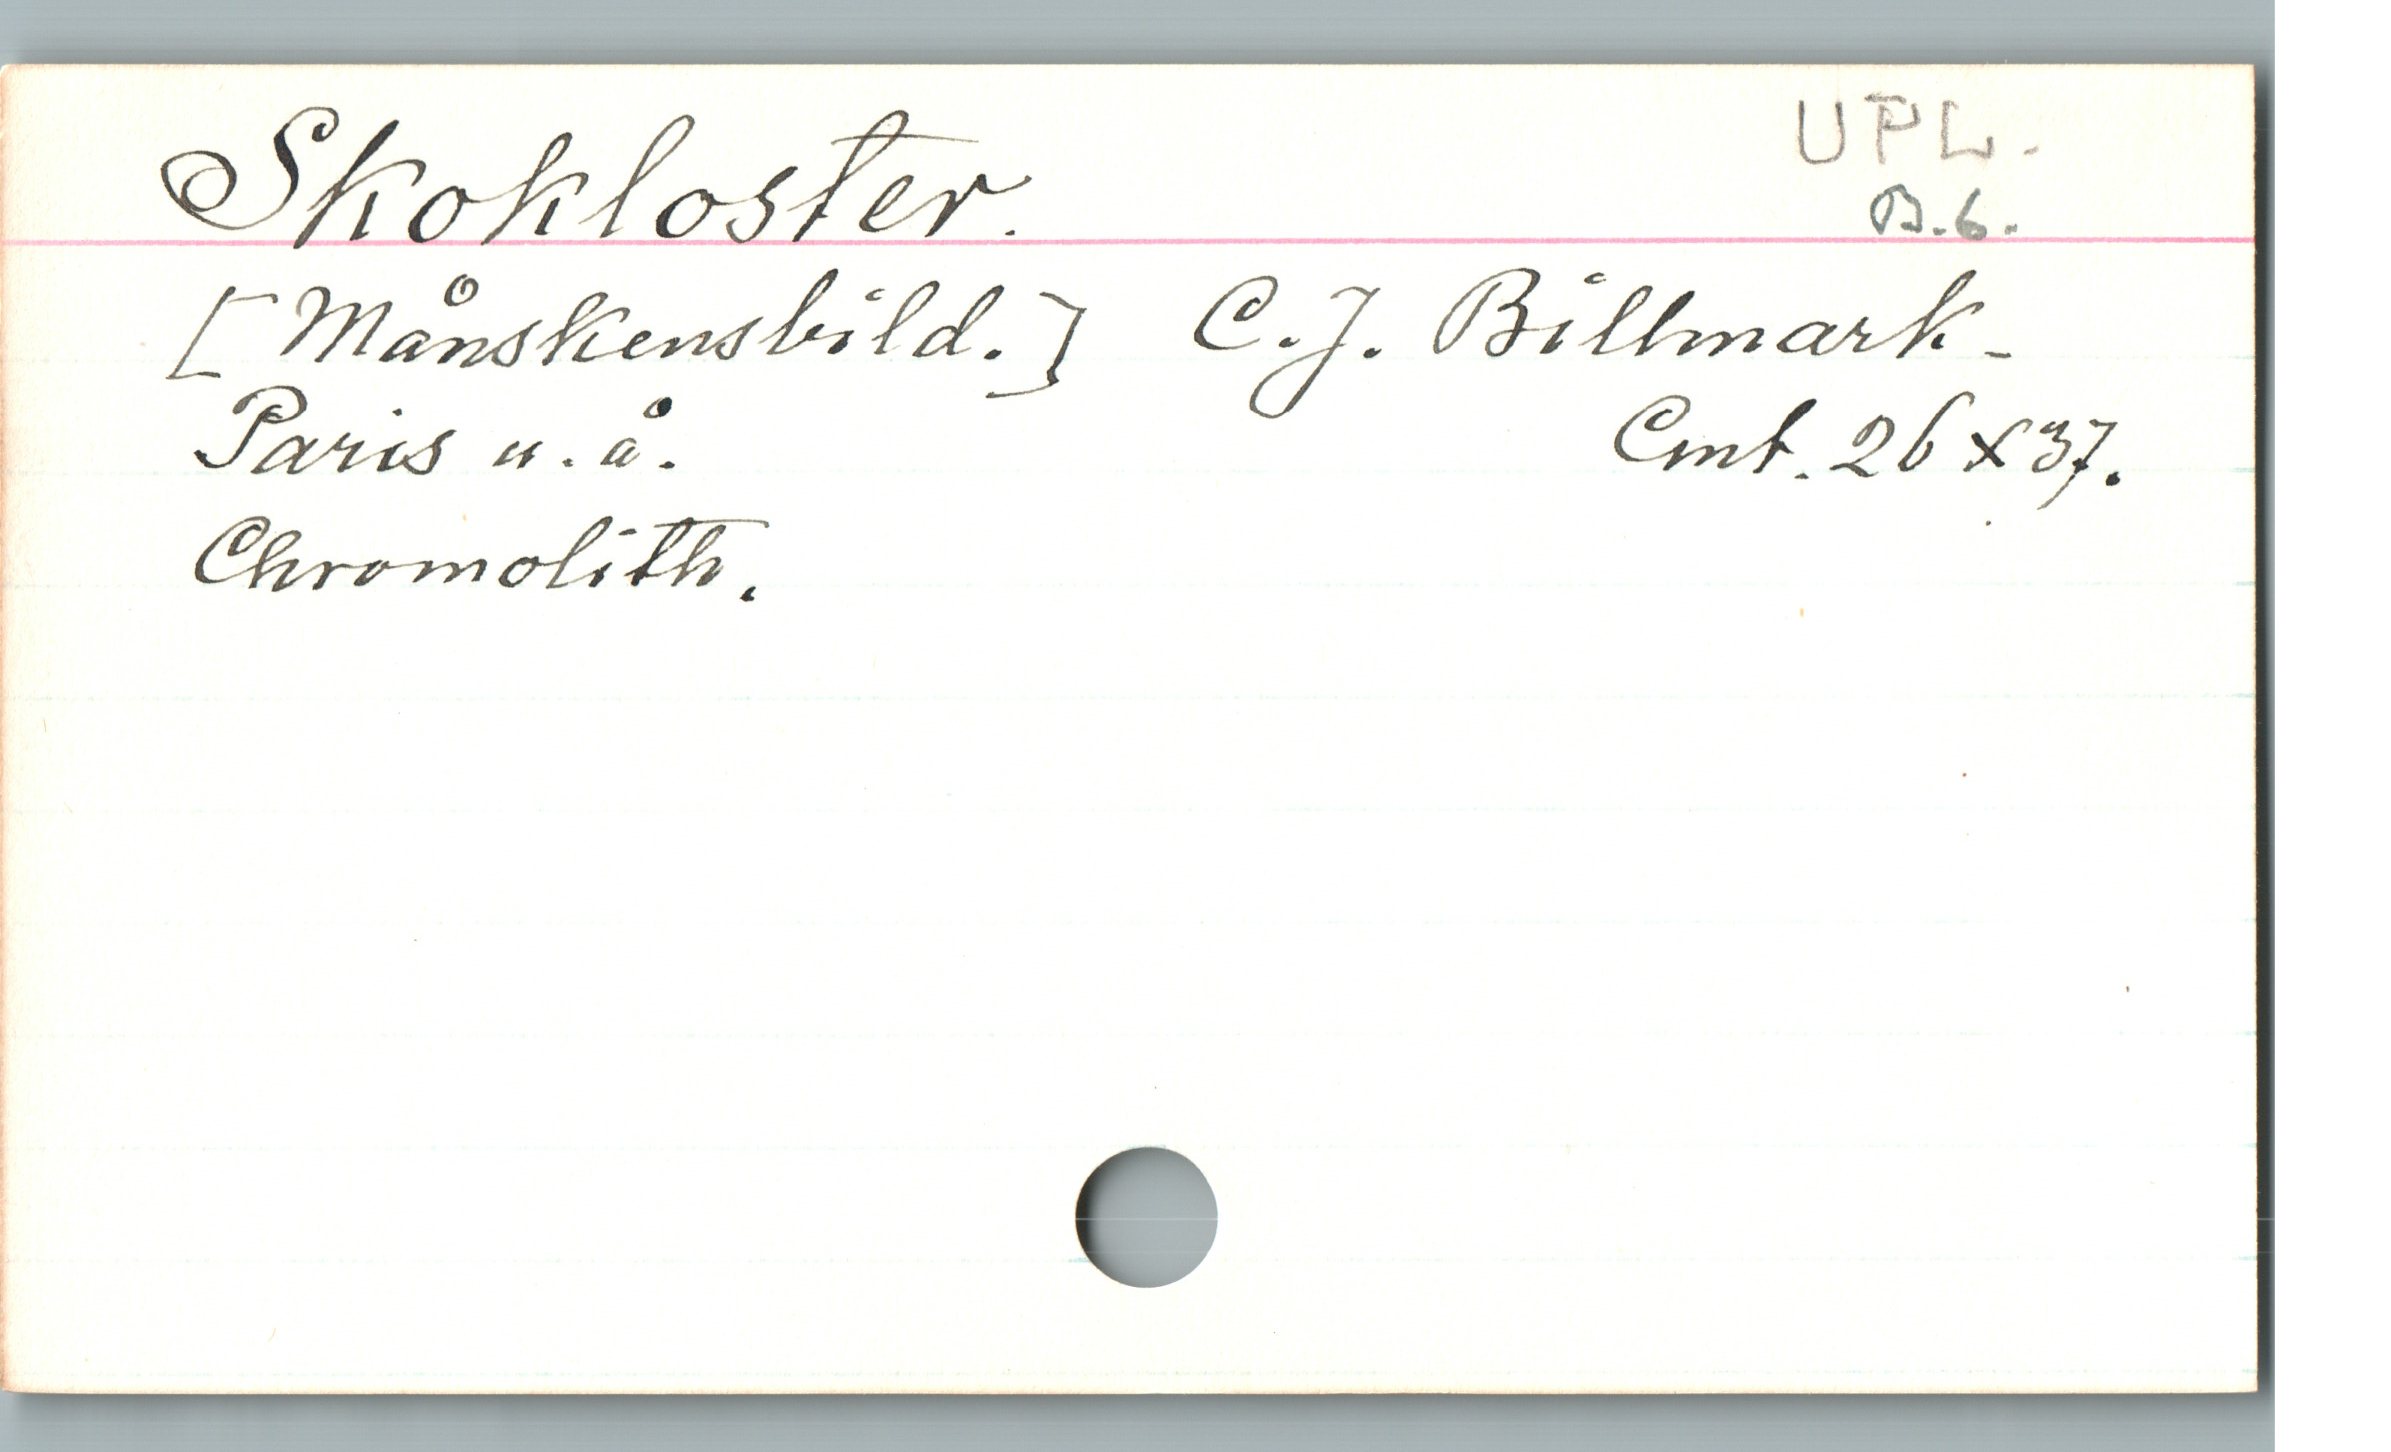 Skokloster.
UPL.
B.6.
[Månskensbild.] C.J. Billmark-
Paris u.å.
Cmt. 26 x 37.
Chromolith.